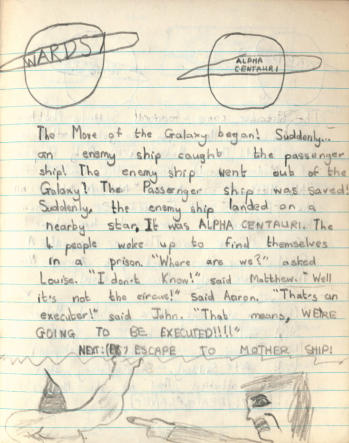 WARDS!
ALPHA
CENTAURI
The Move of the Galaxy began! Suddenly...
an enemy ship caught the passenger
ship! The enemy ship went out of the
Galaxy! The Passenger ship was saved!
Suddenly, the enemy ship landed on a
nearby star, It was ALPHA CENTAURI. The
4 people woke up to find themselves
in a prison. "Where are we?" asked
Louise. "I don't know!" said Matthew. "Well
it's not the circus!" Said Aaron. "That's an
executer!" said John. "That means, WE'RE
GOING TO BE EXECUTED!!!!"
NEXT: ESCAPE TO MOTHER SHIP!